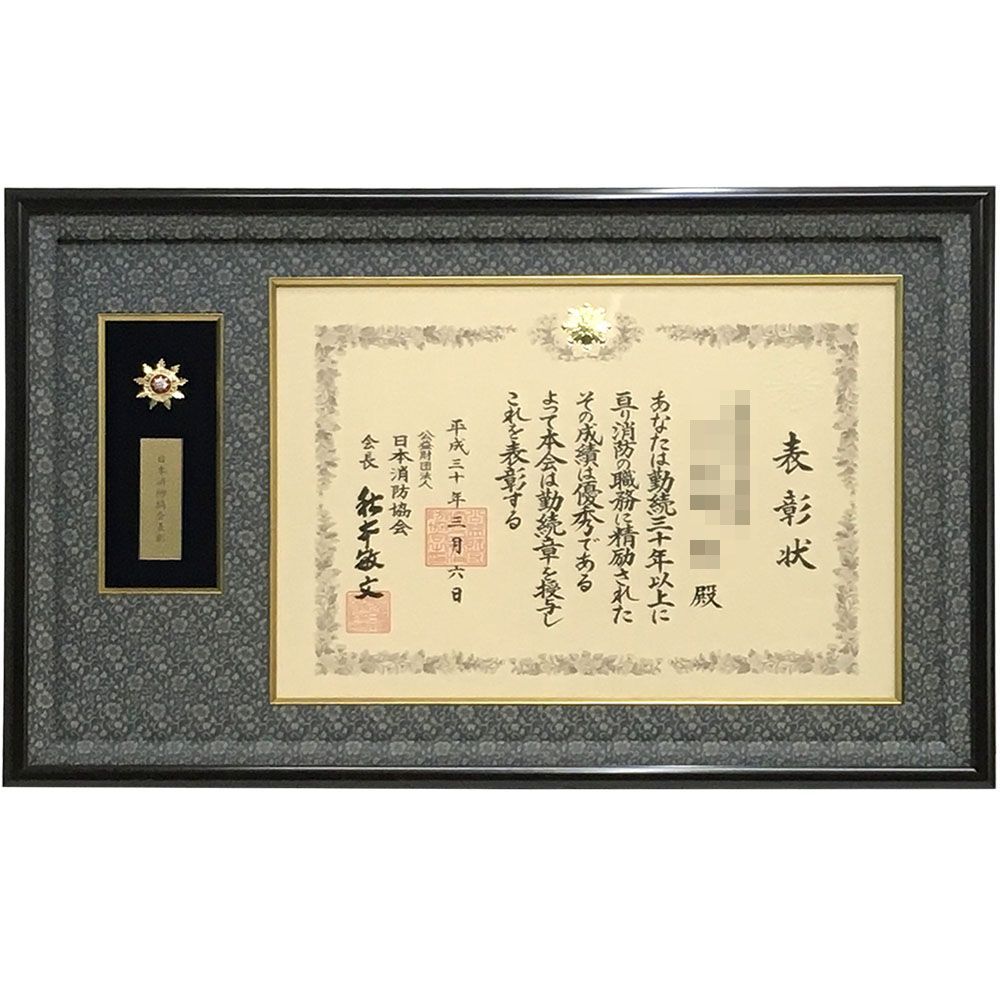 表彰状
殿
あなたは勤続三十年以上に
亘り消防の職務に精励された
その成績は優秀である
よって本会は勤続章を授与し
これを表彰する
平成三十年三月六日
公益財団法人
日本消防協会
会長 秋本敏文
日本消防協会表彰